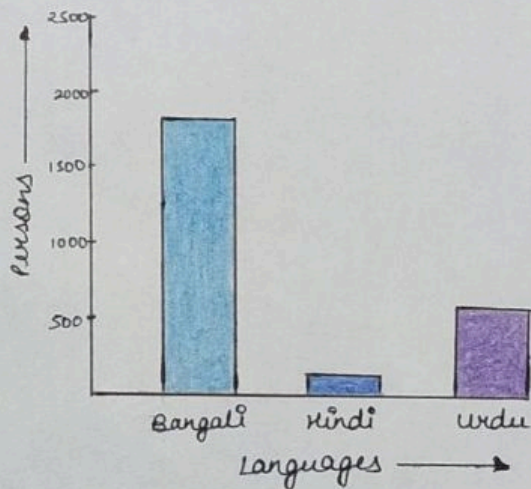 2500
2000
1500
1000
500
Persons
Bangali
Hindi
Urdu
Languages